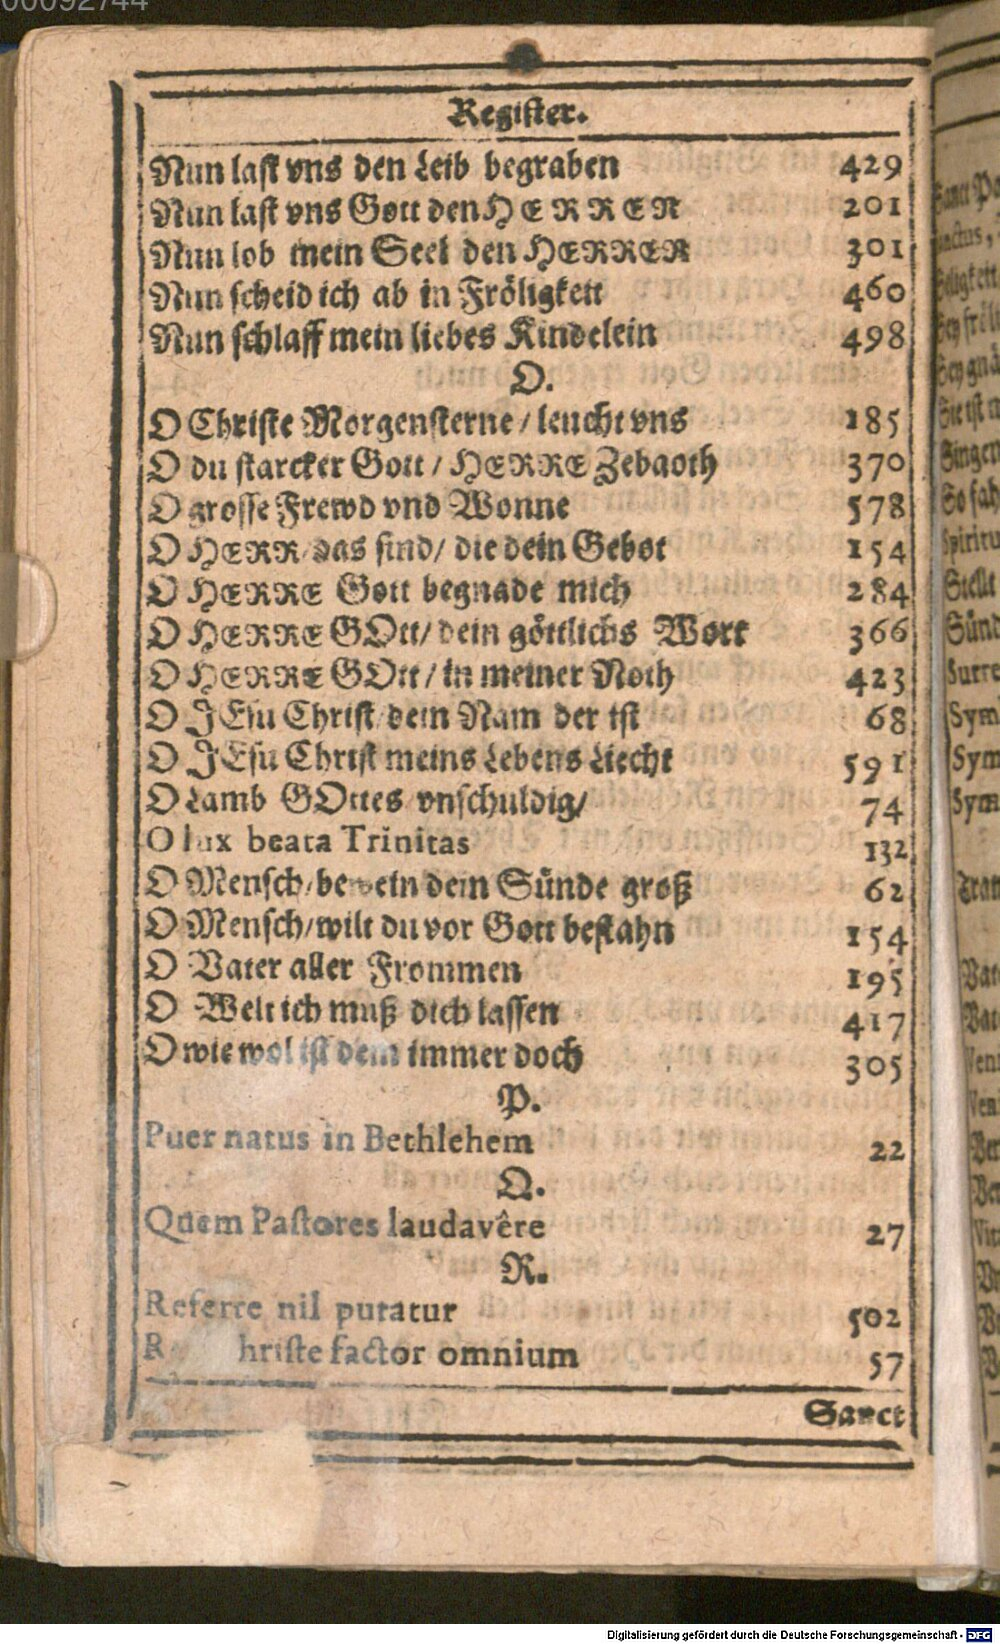 00092744
Register.
Nun last vns den Leib begraben 429
Nun last vns Gott den HERREN 201
Nun lob mein Seel den HERRER 301
Nun scheid ich ab in Fröligkeit 460
Nun schlaff mein liebes Kindelein 498
O.
O Christe Morgensterne / leucht vns 185
O du starcker Gott / HERRE Zebaoth 370
O grosse Frewd vnd Wonne 578
O HERR das sind / die dein Gebot 154
O HERRE Gott begnade mich 284
O HERRE GOtt / dein göttlichs Wort 366
O HERRE GOtt / in meiner Noth 423
O JEsu Christ / dein Nam der ist 68
O JEsu Christ meins Lebens Liecht 591
O Lamb GOttes vnschuldig / 74
O lux beata Trinitas 132
O Mensch / bewein dein Sünde groß 62
O Mensch / wilt du vor Gott bestahn 154
O Vater aller Frommen 195
O Welt ich muß dich lassen 417
O wie wol ist dem immer doch 305
P.
Puer natus in Bethlehem 22
Q.
Quem Pastores laudavêre 27
R.
Referre nil putatur 502
R hriste factor omnium 57
Sanct
Digitalisierung gefördert durch die Deutsche Forschungsgemeinschaft - DFG